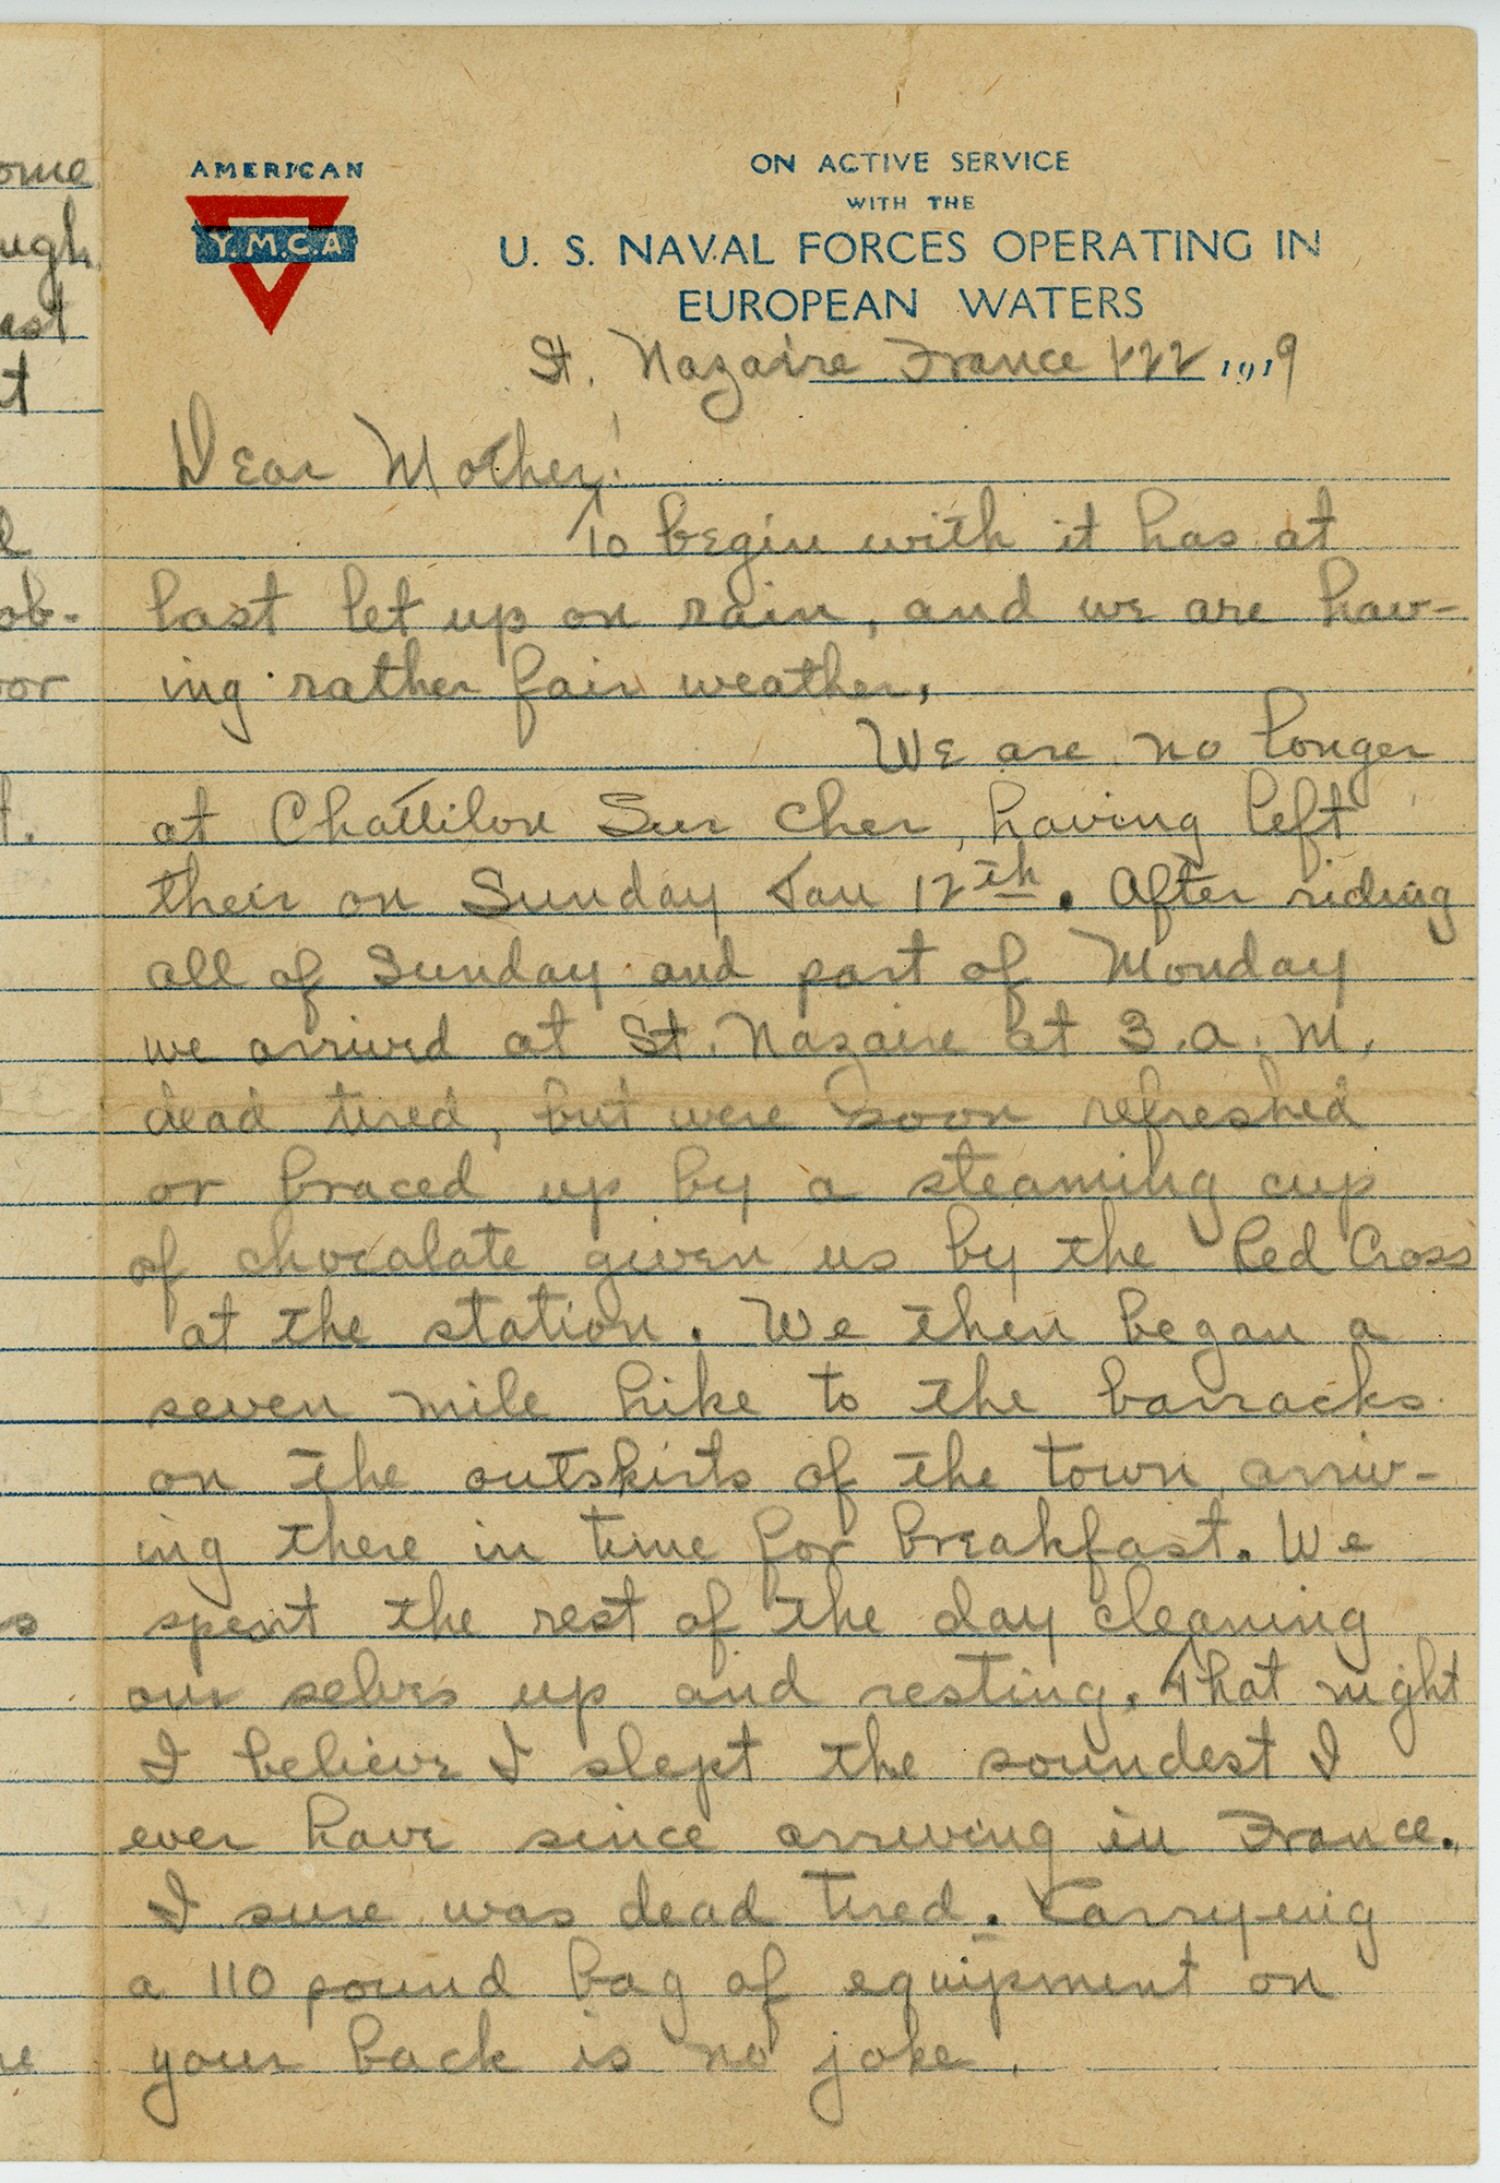 AMERICAN
Y.M.C.A
ON ACTIVE SERVICE
WITH THE
U. S. NAVAL FORCES OPERATING IN
EUROPEAN WATERS
St. Nazaire France 1919
Dear Mother!
To begin with it has at
last let up on rain, and we are hav-
ing rather fair weather.
We are no longer
at Chattilon Sur Cher, having left
their on Sunday Jan 12th. After riding
all of Sunday and part of Monday
we arrived at St. Nazaire at 3.a.M.
dead tired, but were soon refreshed
or braced up by a steaming cup
of chocolate given us by the Red Cross
at the station. We then began a
seven mile hike to the barracks
on the outskirts of the town, arriv-
ing there in time for breakfast. We
spent the rest of the day cleaning
our selves up and resting. That night
I believe I slept the soundest I
ever have since arriving in France.
I sure was dead tired. Carrying
a 110 pound bag of equipment on
your back is no joke.